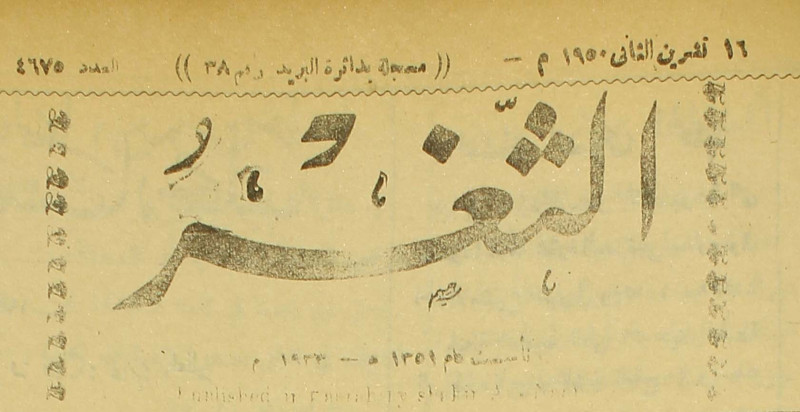 ١٦ تشرين الثاني ١٩٥٠ م — (( مسجلة بدائرة البريد رقم ٣٨ )) العدد ٤٦٧٥
الثَّغْرُ
تأسست عام ١٣٥١ ه — ١٩٣٣ م
Published in